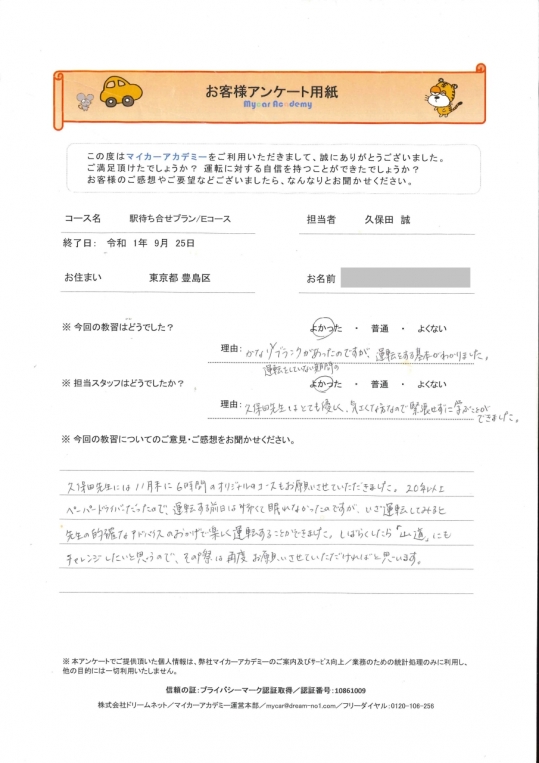 お客様アンケート用紙
Mycar Academy
この度はマイカーアカデミーをご利用いただきまして、誠にありがとうございました。
ご満足頂けたでしょうか？ 運転に対する自信を持つことができたでしょうか？
お客様のご感想やご要望などございましたら、なんなりとお聞かせください。
コース名 駅待ち合せプラン/Eコース 担当者 久保田 誠
終了日: 令和 1年 9月 25日
お住まい 東京都 豊島区 お名前
※ 今回の教習はどうでした？ よかった ・ 普通 ・ よくない
理由: かなりブランクがあったのですが、運転をする基本がわかりました。
運転をしていない期間の
※ 担当スタッフはどうでしたか？ よかった ・ 普通 ・ よくない
理由: 久保田先生はとても優しく、気さくな方なので緊張せずに学ぶことが
できました。
※ 今回の教習についてのご意見・ご感想をお聞かせください。
久保田先生には11月末に6時間のオリジナルのコースもお願いさせていただきました。20年以上
ペーパードライバーだったので、運転する前日は怖くて眠れなかったのですが、いざ運転してみると
先生の的確なアドバイスのおかげで楽しく運転することができました。しばらくしたら「山道」にも
チャレンジしたいと思うので、その際は再度お願いさせていただければと思います。
※ 本アンケートでご提供頂いた個人情報は、弊社マイカーアカデミーのご案内及びサービス向上／業務のための統計処理のみに利用し、
他の目的には一切利用いたしません。
信頼の証：プライバシーマーク認証取得／認証番号：10861009
株式会社ドリームネット／マイカーアカデミー運営本部／mycar@dream-no1.com／フリーダイヤル：0120-106-256